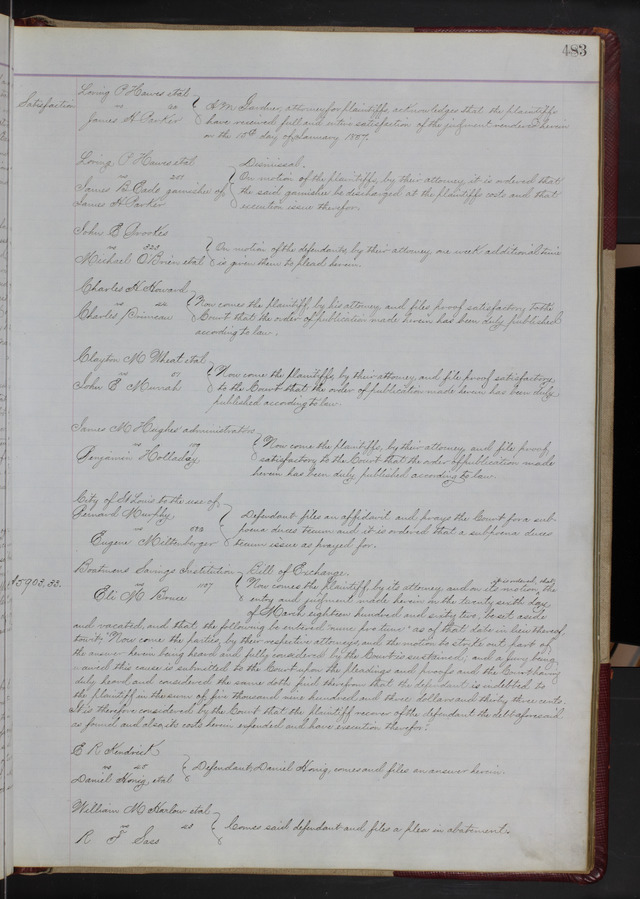 483
Loring P Hawes et al
Satisfaction vs 20 A M Gardner, attorney for plaintiffs, acknowledges that the plaintiffs
James H Parker have received full and entire satisfaction of the judgment rendered herein
on the 10th day of January 1857.
Loring P Hawes et al Dismissal.
vs 201 On motion of the plaintiffs, by their attorney it is ordered that
James B Eads, garnishee of the said garnishee be discharged at the plaintiffs costs and that
James H Parker execution issue therefor.
John B Brookes
vs 323 On motion of the defendants, by their attorney, one week additional time
Michael O'Brien et al is given them to plead herein.
Charles H Howard
vs Now comes the plaintiff, by his attorney, and files proof satisfactory to the
Charles Court that the order of publication made herein has been duly published
according to law.
Clayton M Wheat et al
vs 87 Now come the plaintiffs, by their attorney, and file proof satisfactory
John E Murrah to the Court that the order of publication made herein has been duly
published according to law.
James M Hughes administrators
vs 179 Now come the plaintiffs, by their attorney, and file proof
Benjamin Holladay satisfactory to the Court that the order of publication made
herein has been duly published according to law.
City of St Louis to the use of
Bernard Murphy Defendant files an affidavit and prays the Court for a sub-
vs poena duces tecum and it is ordered that a subpoena duces
Eugene Miltenberger tecum issue as prayed for.
Boatmens Savings Institution Bill of Exchange.
$5903.33. vs 1127 Now comes the plaintiff, by its attorney and on its motion, it is ordered, that the
Eli M Bruce entry and judgment made herein on the twenty sixth day
of March eighteen hundred and sixty two, be set aside
and vacated, and that the following be entered "nunc pro tunc" as of that date in lieu thereof,
towit: "Now come the parties, by their respective attorneys, and the motion to strike out part of
the answer herein being heard and fully considered by the Court is sustained, and a jury being
waived this cause is submitted to the Court upon the pleadings and proofs and the Court having
duly heard and considered the same doth find therefrom that the defendant is indebted to
the plaintiff in the sum of five thousand nine hundred and three dollars and thirty three cents.
It is therefore considered by the Court that the plaintiff recover of the defendant the debt aforesaid
as found and also its costs herein expended and have execution therefor."
E R Kendrick
vs Defendant, Daniel Honig, comes and files an answer herein.
Daniel Honig et al
William M Harlow et al
vs Comes said defendant and files a plea in abatement.
R F Sass